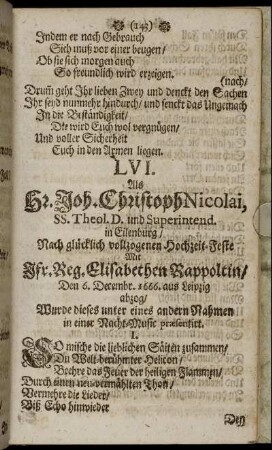 (143)
Indem er nach Gebrauch
Sich muß vor einer beugen/
Ob sie sich morgen auch
So freundlich wird erzeigen.
(nach/
Drum geht Ihr lieben Zwey und denckt den Sachen
Ihr seyd nunmehr hindurch/ und senckt das Ungemach
In die Beständigkeit/
Die wird Euch wol vergnügen/
Und voller Sicherheit
Euch in den Armen liegen.
LVI.
Als
Hr. Joh. Christoph Nicolai,
SS. Theol. D. und Superintend.
in Eilenburg/
Nach glücklich vollzogenen Hochzeit-Feste
Mit
Jfr. Reg. Elisabethen Rappoltin/
Den 6. Decembr. 1666. aus Leipzig
abzog/
Wurde dieses unter eines andern Nahmen
in einer Nacht-Music præsentirt.
I.
SO mische die lieblichen Säiten zusammen/
Du Welt-berühmter Helicon/
Bewehre das Feuer der heiligen Flammen/
Durch einen neu-vermählten Thon/
Vermehre die Lieder/
Biß Echo hinwieder
Den